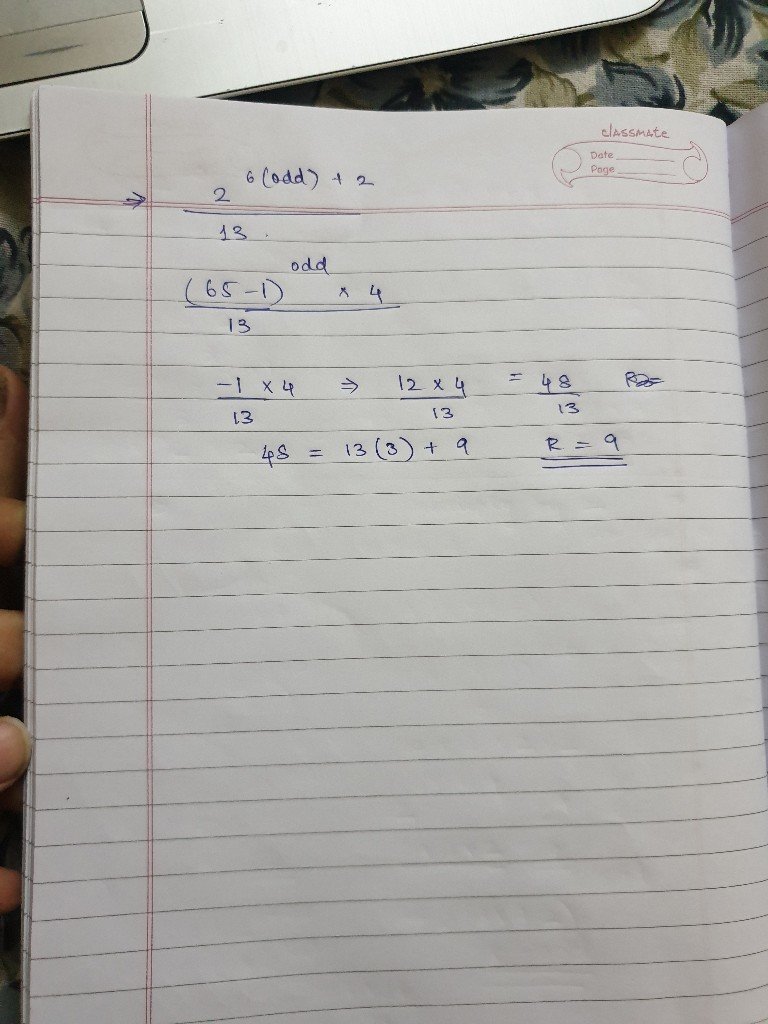 classmate
Date
Page
→ 2^{6(odd) + 2}
13.
(65 - 1)^{odd} × 4
13
-1 × 4 ⇒ 12 × 4 = 48
13 13 13
48 = 13(3) + 9 R = 9